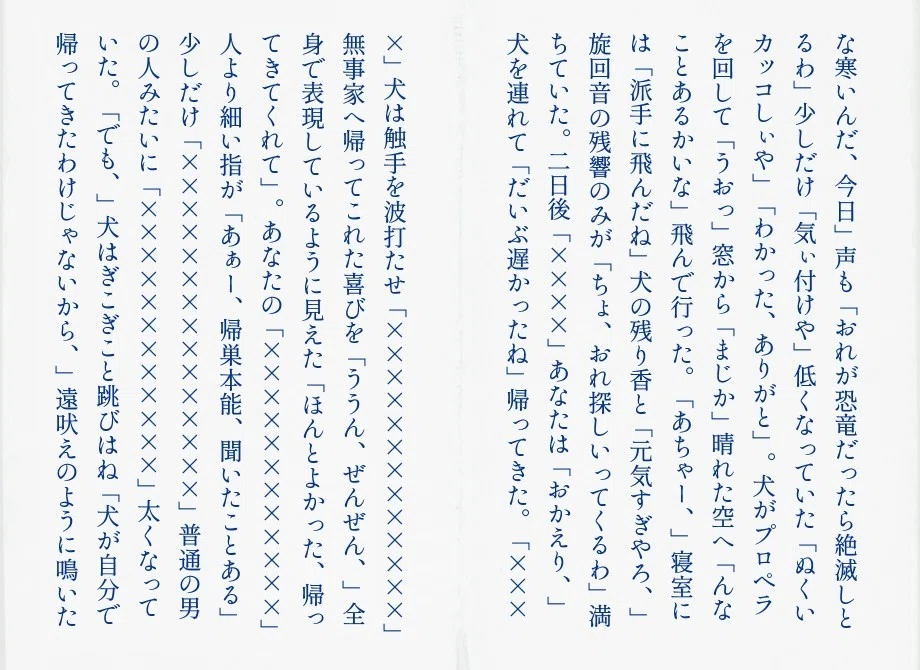 な寒いんだ、今日」声も「おれが恐竜だったら絶滅しと
るわ」少しだけ「気ぃ付けや」低くなっていた「ぬくい
カッコしぃや」「わかった、ありがと」。犬がプロペラ
を回して「うおっ」窓から「まじか」晴れた空へ「んな
ことあるかいな」飛んで行った。「あちゃー、」寝室に
は「派手に飛んだね」犬の残り香と「元気すぎやろ、」
旋回音の残響のみが「ちょ、おれ探しいってくるわ」満
ちていた。二日後「××××」あなたは「おかえり、」
犬を連れて「だいぶ遅かったね」帰ってきた。「×××
×」犬は触手を波打たせ「×××××××××××××」
無事家へ帰ってこれた喜びを「ううん、ぜんぜん、」全
身で表現しているように見えた「ほんとよかった、帰っ
てきてくれて」。あなたの「××××××××××××」
人より細い指が「あぁー、帰巣本能、聞いたことある」
少しだけ「××××××××××××××」普通の男
の人みたいに「××××××××××××」太くなって
いた。「でも、」犬はぎこぎこと跳びはね「犬が自分で
帰ってきたわけじゃないから、」遠吠えのように鳴いた